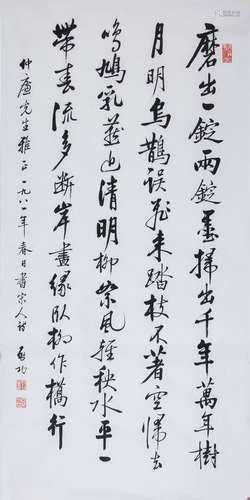 磨出一錠兩錠墨掃出千年萬年樹
月明烏鵲誤飛來踏枝不著空歸去
鳴鳩乳燕近清明柳風輕秧水平一
帶春流多斷岸盡緣臥柳作橋行
仲廬先生雅正一九八二年春日書宋人詩 啟功